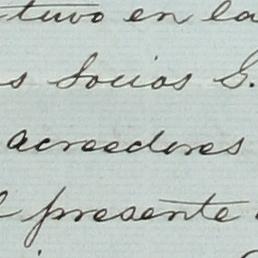 tuvo en la
s Socios S.
acreedores
l presente